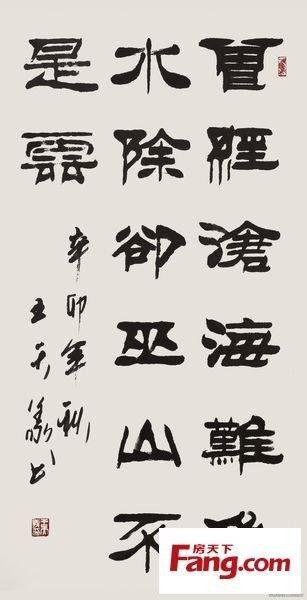 曾經滄海難為
水除卻巫山不
是雲
辛卯年秋
王天義书
房天下
Fang.com